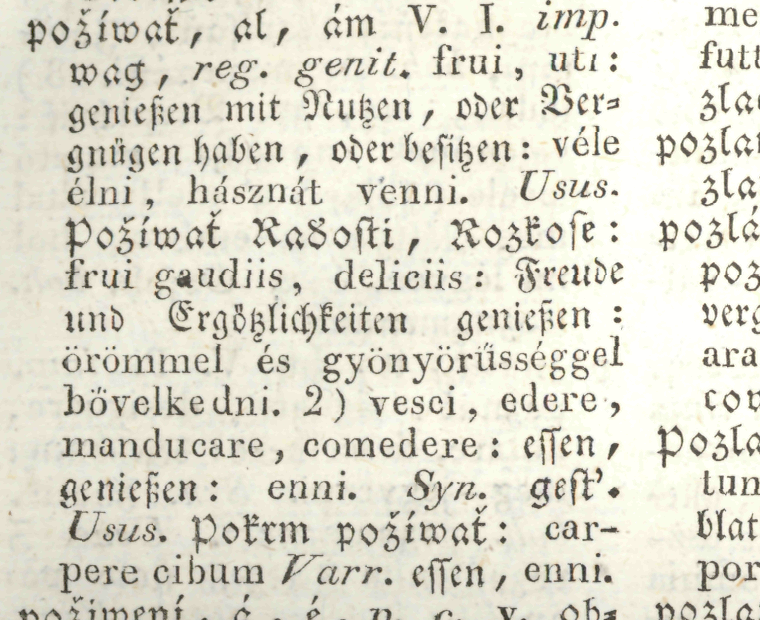 požíwať, al, ám V. I. imp.
wag, reg. genit. frui, uti:
genießen mit Nutzen, oder Ver=
gnügen haben, oder besitzen: véle
élni, hásznát venni. Usus.
Požíwať Radosti, Rozkoše:
frui gaudiis, deliciis: Freude
und Ergötzlichkeiten genießen:
örömmel és gyönyörűsséggel
bővelkedni. 2) vesci, edere,
manducare, comedere: essen,
genießen: enni. Syn. gesť.
Usus. Pokrm požíwať: car-
pere cibum Varr. essen, enni.
me
futt
zlac
pozlan
zla
pozlá
poz
verg
ara
cov
Pozla
tun
blat
por